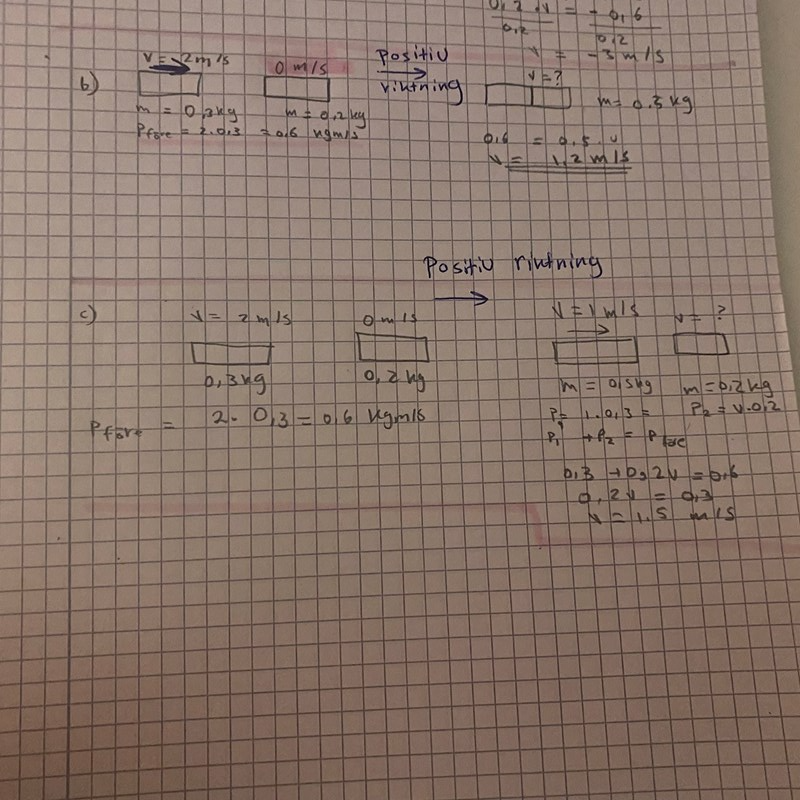 0,2 · v = - 0,6
0,2 0,2
v = -3 m/s
b)
v = 2 m/s
0 m/s
Positiv
riktning
v = ?
m = 0,3 kg
m = 0,2 kg
m = 0.5 kg
Pföre = 2·0,3 = 0,6 kgm/s
0,6 = 0,5·v
v = 1,2 m/s
Positiv riktning
c)
v = 2 m/s
0 m/s
v = 1 m/s
v = ?
0,3 kg
0,2 kg
m = 0,3 kg
m = 0,2 kg
Pföre = 2 · 0,3 = 0,6 kgm/s
P1 = 1·0,3 =
P2 = v·0,2
P1 + P2 = Pföre
0,3 + 0,2v = 0,6
0,2v = 0,3
v = 1.5 m/s